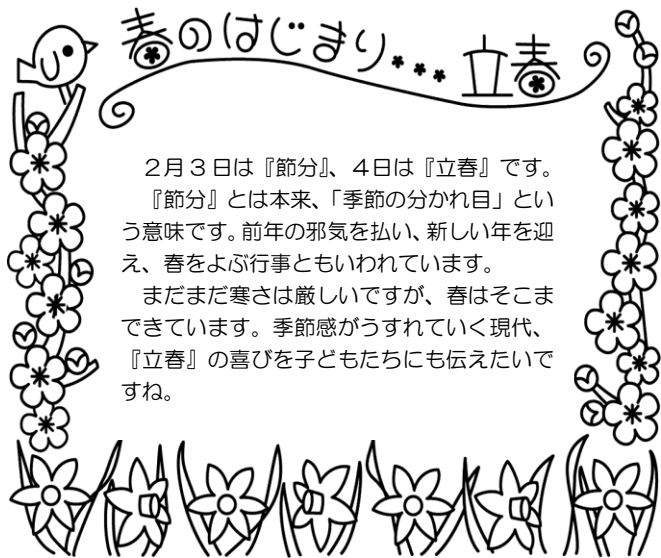 春のはじまり... 立春
　２月３日は『節分』、４日は『立春』です。
　『節分』とは本来、「季節の分かれ目」とい
う意味です。前年の邪気を払い、新しい年を迎
え、春をよぶ行事ともいわれています。
　まだまだ寒さは厳しいですが、春はそこま
できています。季節感がうすれていく現代、
『立春』の喜びを子どもたちにも伝えたいで
すね。